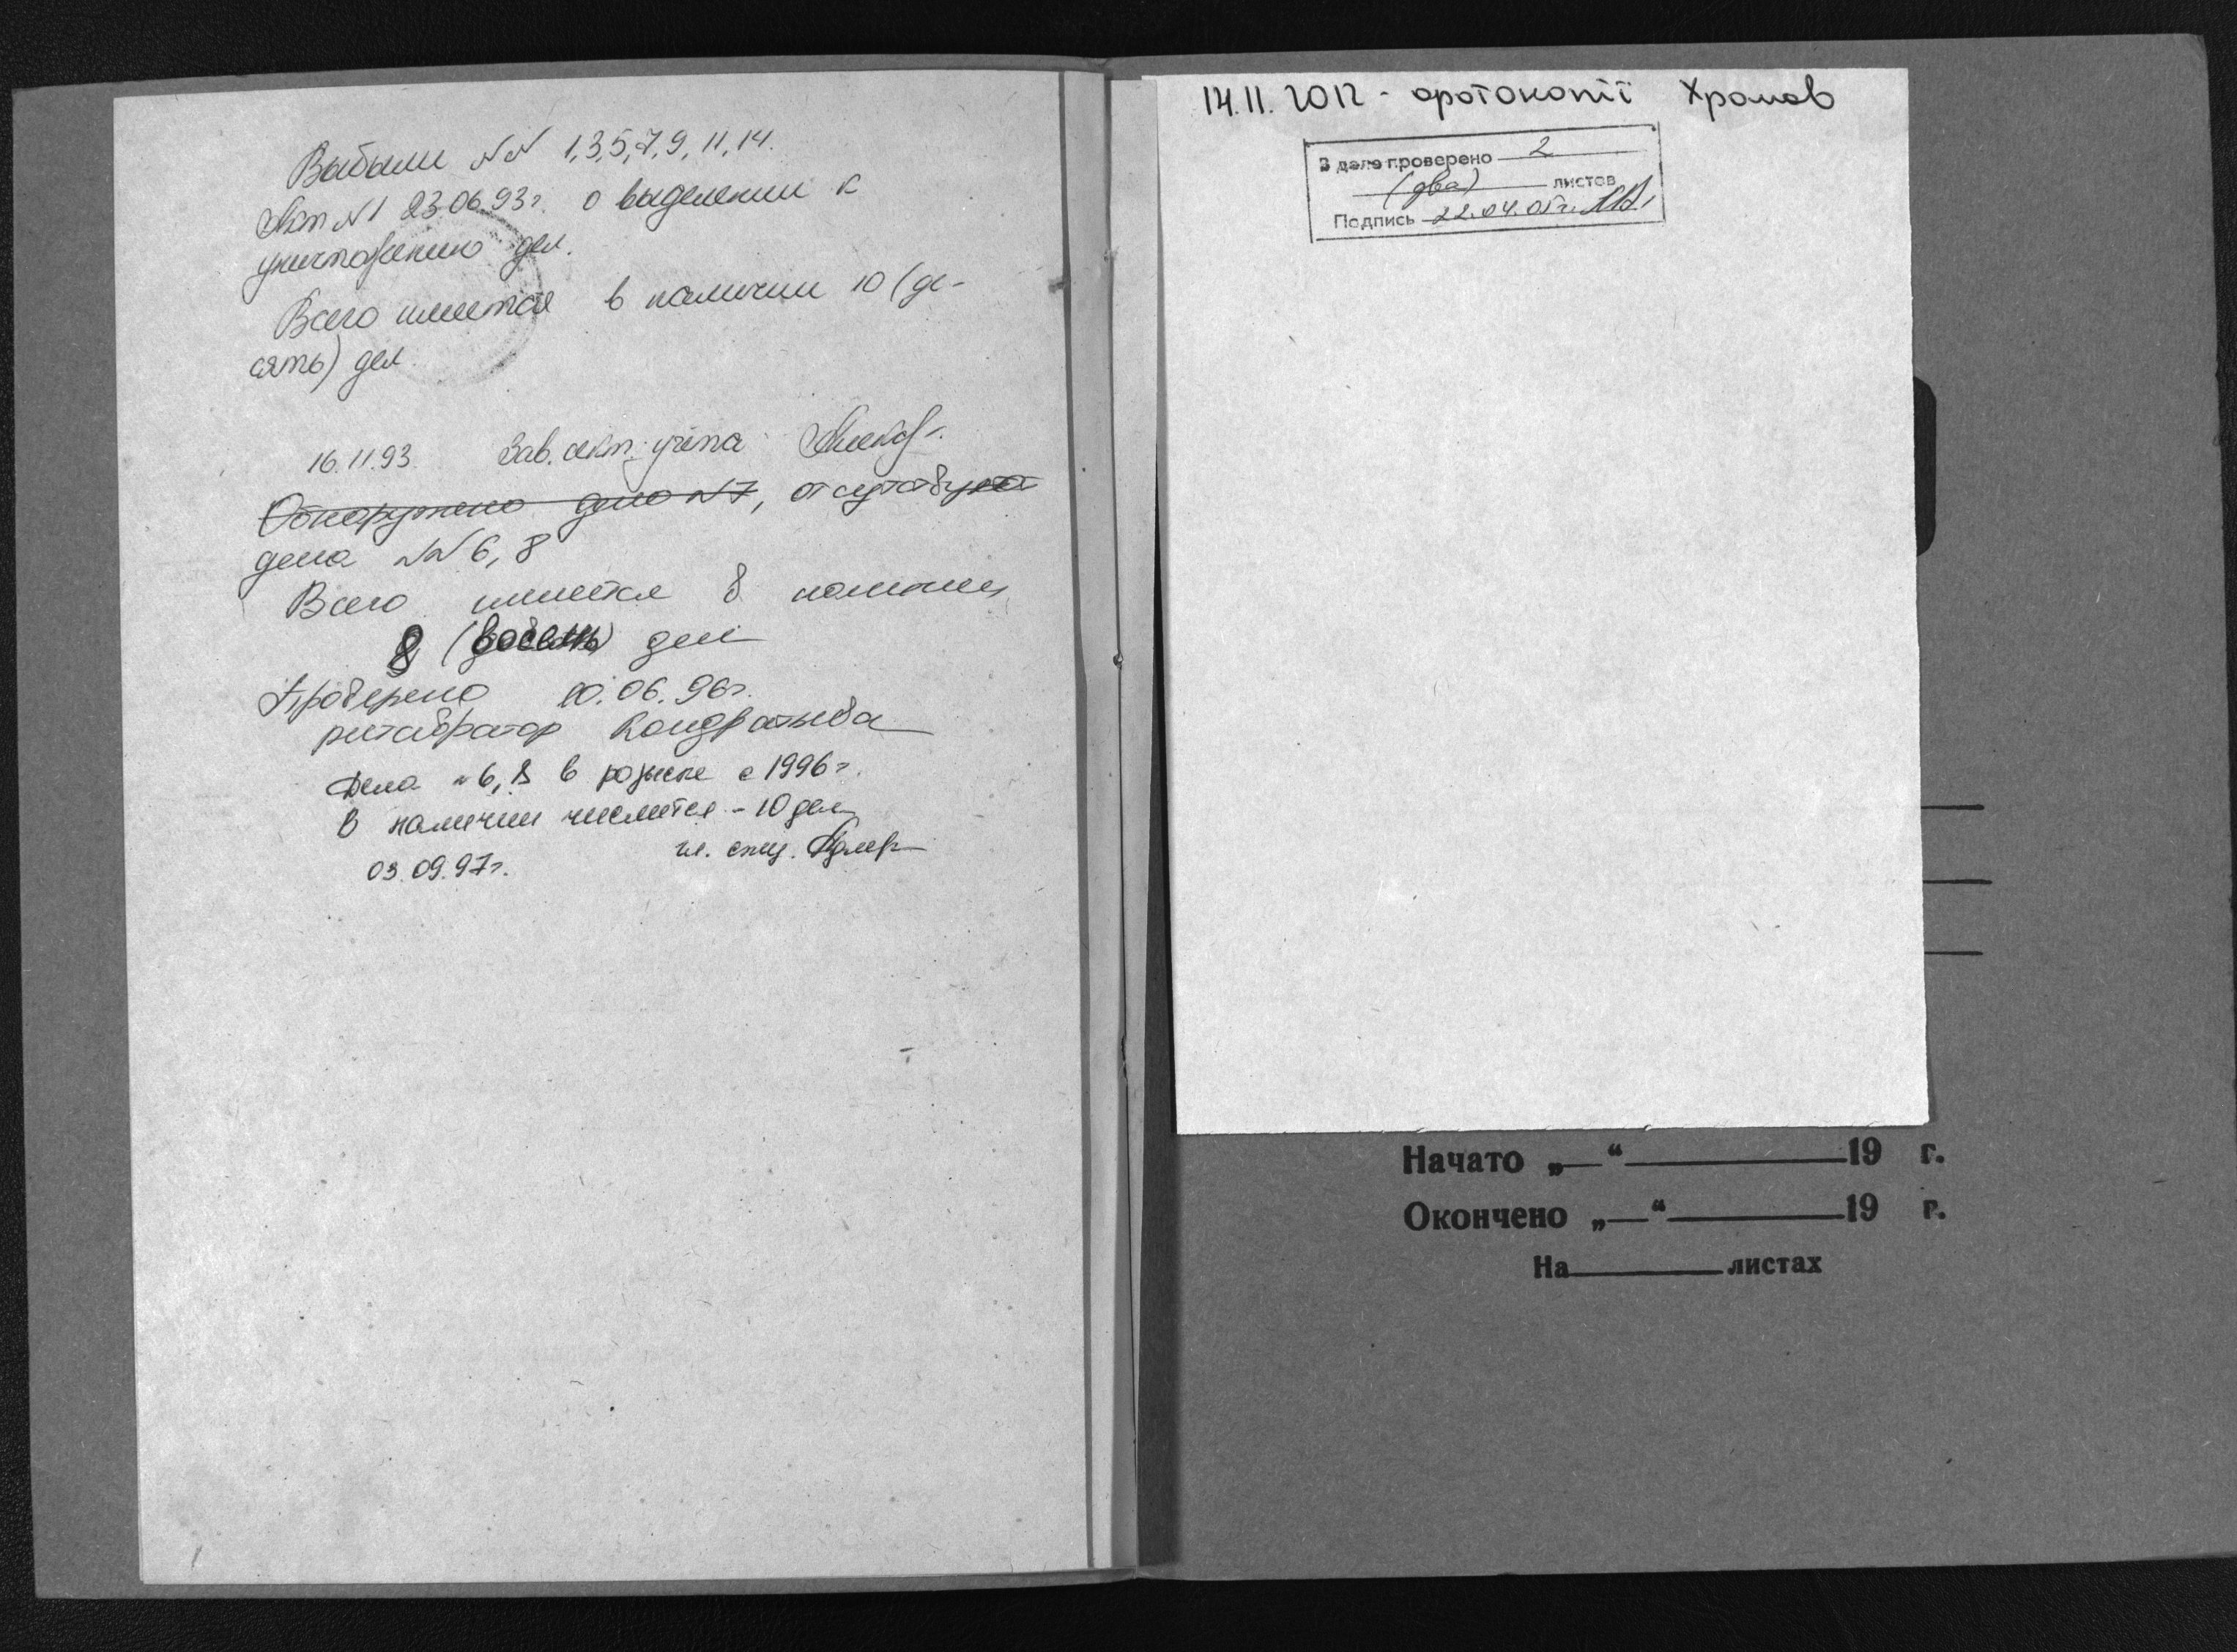 Выбыли NN 1,3,5,7,9,11,14.
Акт N1 23.06.93г. о выделении к
уничтожению дел.
Всего имеется в наличии 10 (де-
сять) дел.
16.11.93. Зав. сект. учета
Обнаружено дело N7, отсутствуют
дела NN 6, 8
Всего имеется в наличии
8 (восемь) дел
Проверено 10.06.96г.
реставратор Кондратьева
Дела N 6, 8 в розыске с 1996г.
В наличии числится - 10 дел
гл. спец.
03.09.97г.
14.11.2012 - фотокопії Хромов
В деле проверено 2
(два) листов
Подпись 22.04.05г.
Начато „—“ 19 г.
Окончено „—“ 19 г.
На листах